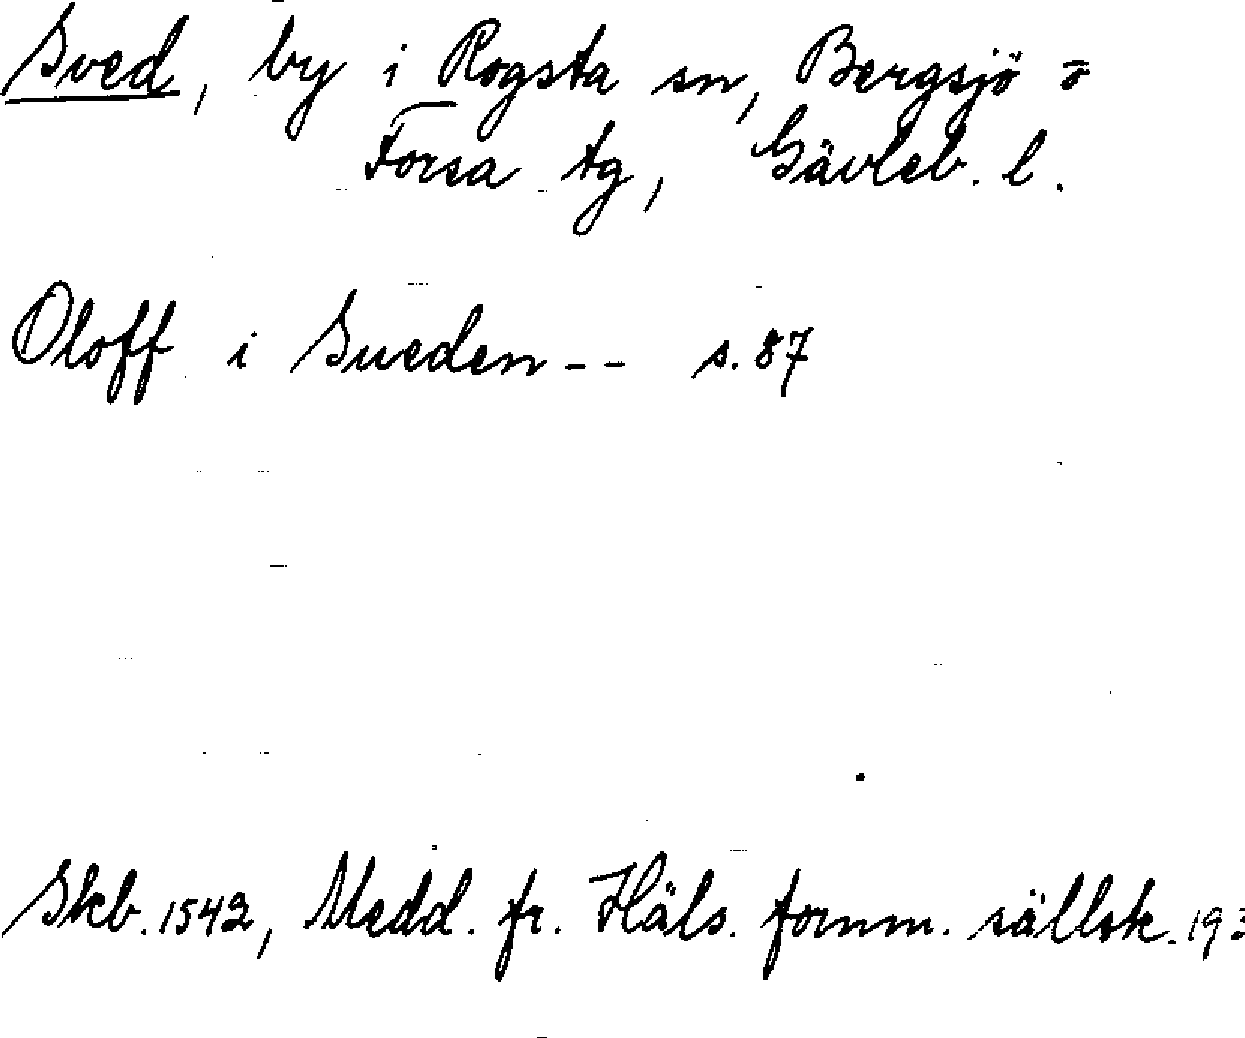 Sved, by i Rogsta sn, Bergsjö o
Forsa tg, Gävleb. l.
Oloff i Sueden -- s. 87
Skb. 1542, Medd. fr. Häls. fornm. sällsk. 193